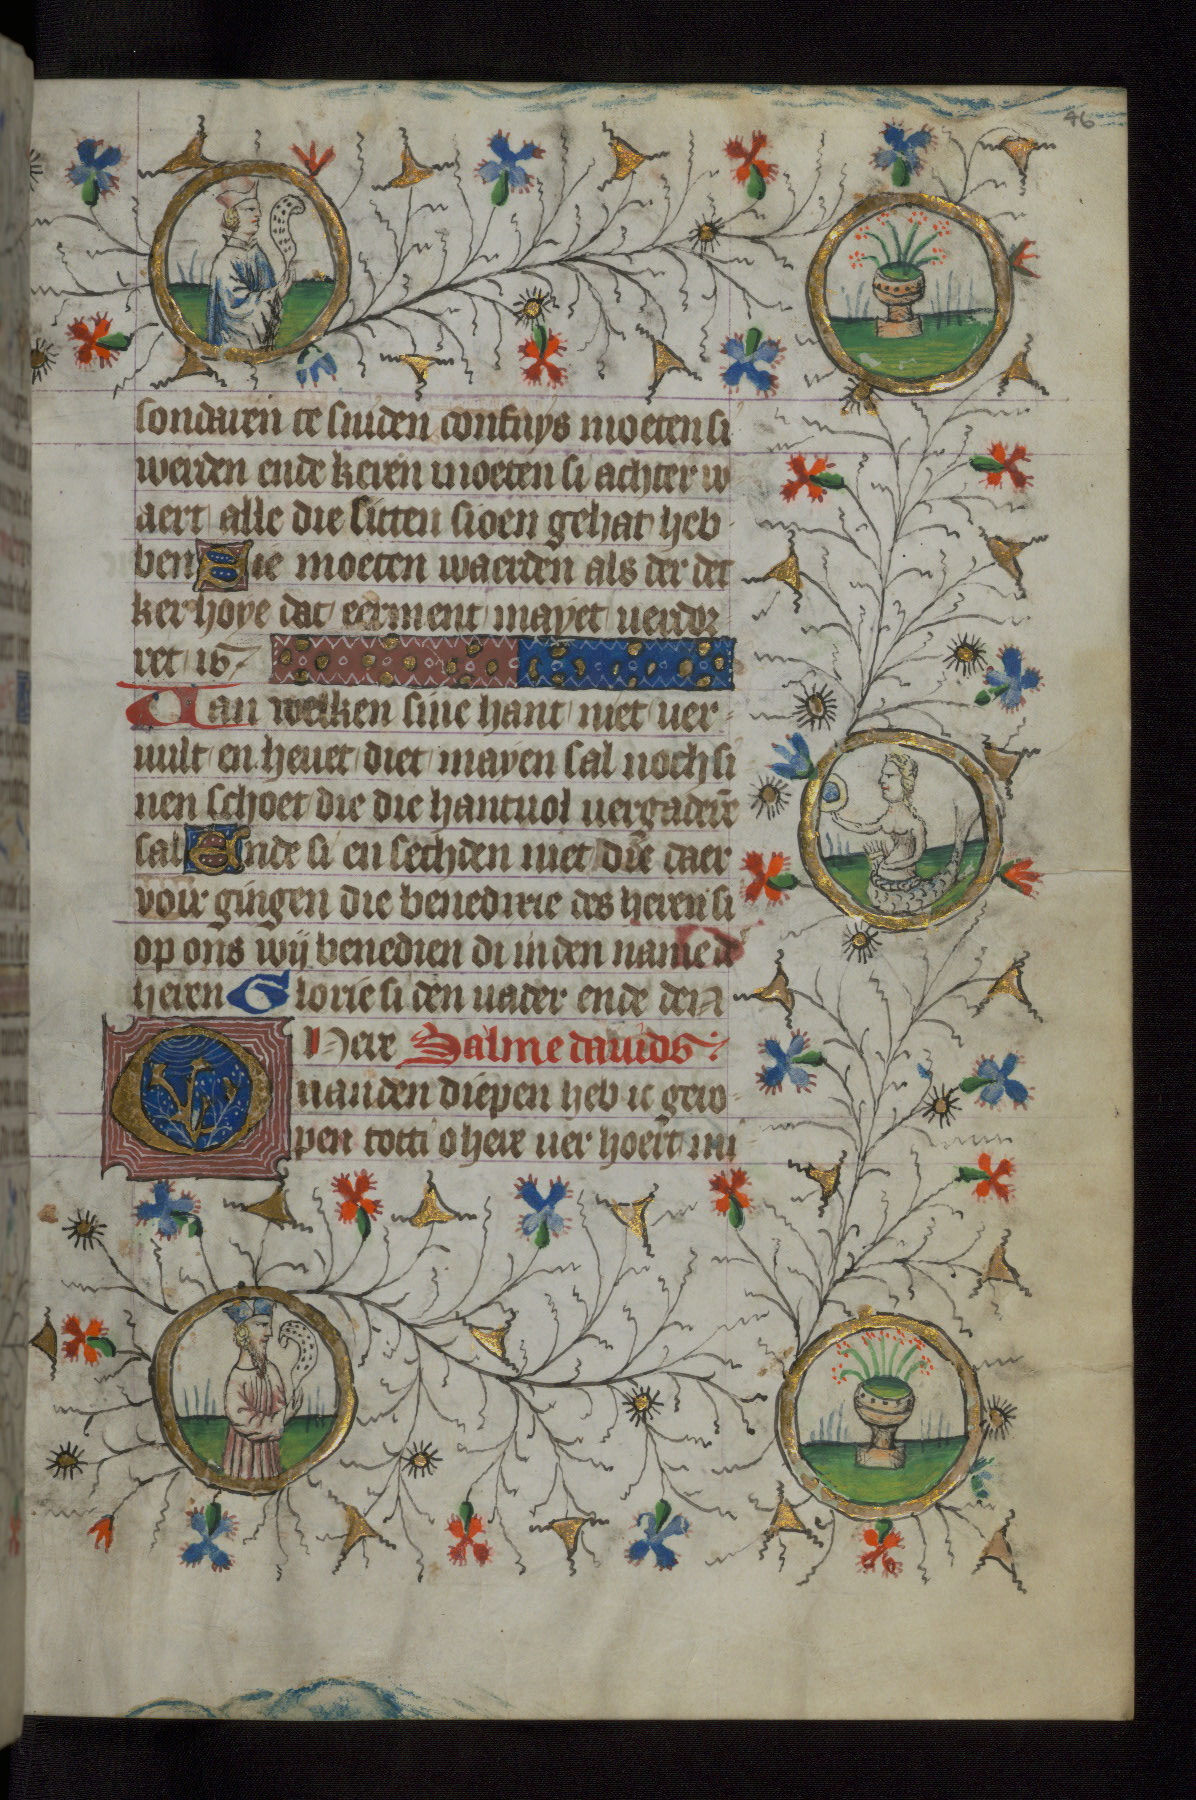 46
sondaren te sniden confuys moeten si
werden ende keren moeten si achter w
aert alle die sitten sioen gehat heb
ben Sie moeten waerden als der det
ker hoye dat eerment mayet verdor
ret is
Van welken sine hant niet ver
vult en hevet diet mayen sal noch si
nen schoet die die hantvol vergadere
sal Ende si en sechden niet die daer
voir gingen die benedixie des heren si
op ons wij benedien di in den name d
heren Glorie si den vader ende den
Here Salme davids
van den diepen heb ic gero
pen totti o here ver hoert mi